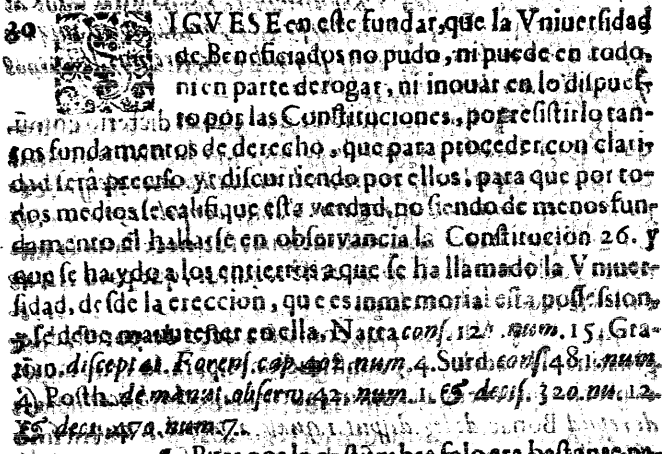 20 SIGVESE en este fundar, que la Vniuersidad
de Beneficiados no pudo, ni puede en todo,
ni en parte derogar, ni inouar en lo dispues-
to por las Constituciones, por resistirlo tan-
tos fundamentos de derecho, que para proceder con clari-
dad serà preciso yr discurriendo por ellos, para que por to-
dos medios se califique esta verdad, no siendo de menos fun-
damento el hallarse en obseruancia la Constitucion 26. y
que se ha ydo a los entierros a que se ha llamado la Vniuer-
sidad, desde la ereccion, que es inmemorial esta possession,
y se deue manutener en ella, Natta cons. num. 15. Gra-
tian. discept. Forens. cap. 402. num. 4. Surd. cons. 481. num.
4. Posth. de manut. obseru. 42. num. 1. & decis. 320. nu. 12.
& decis. 470. num. 7.